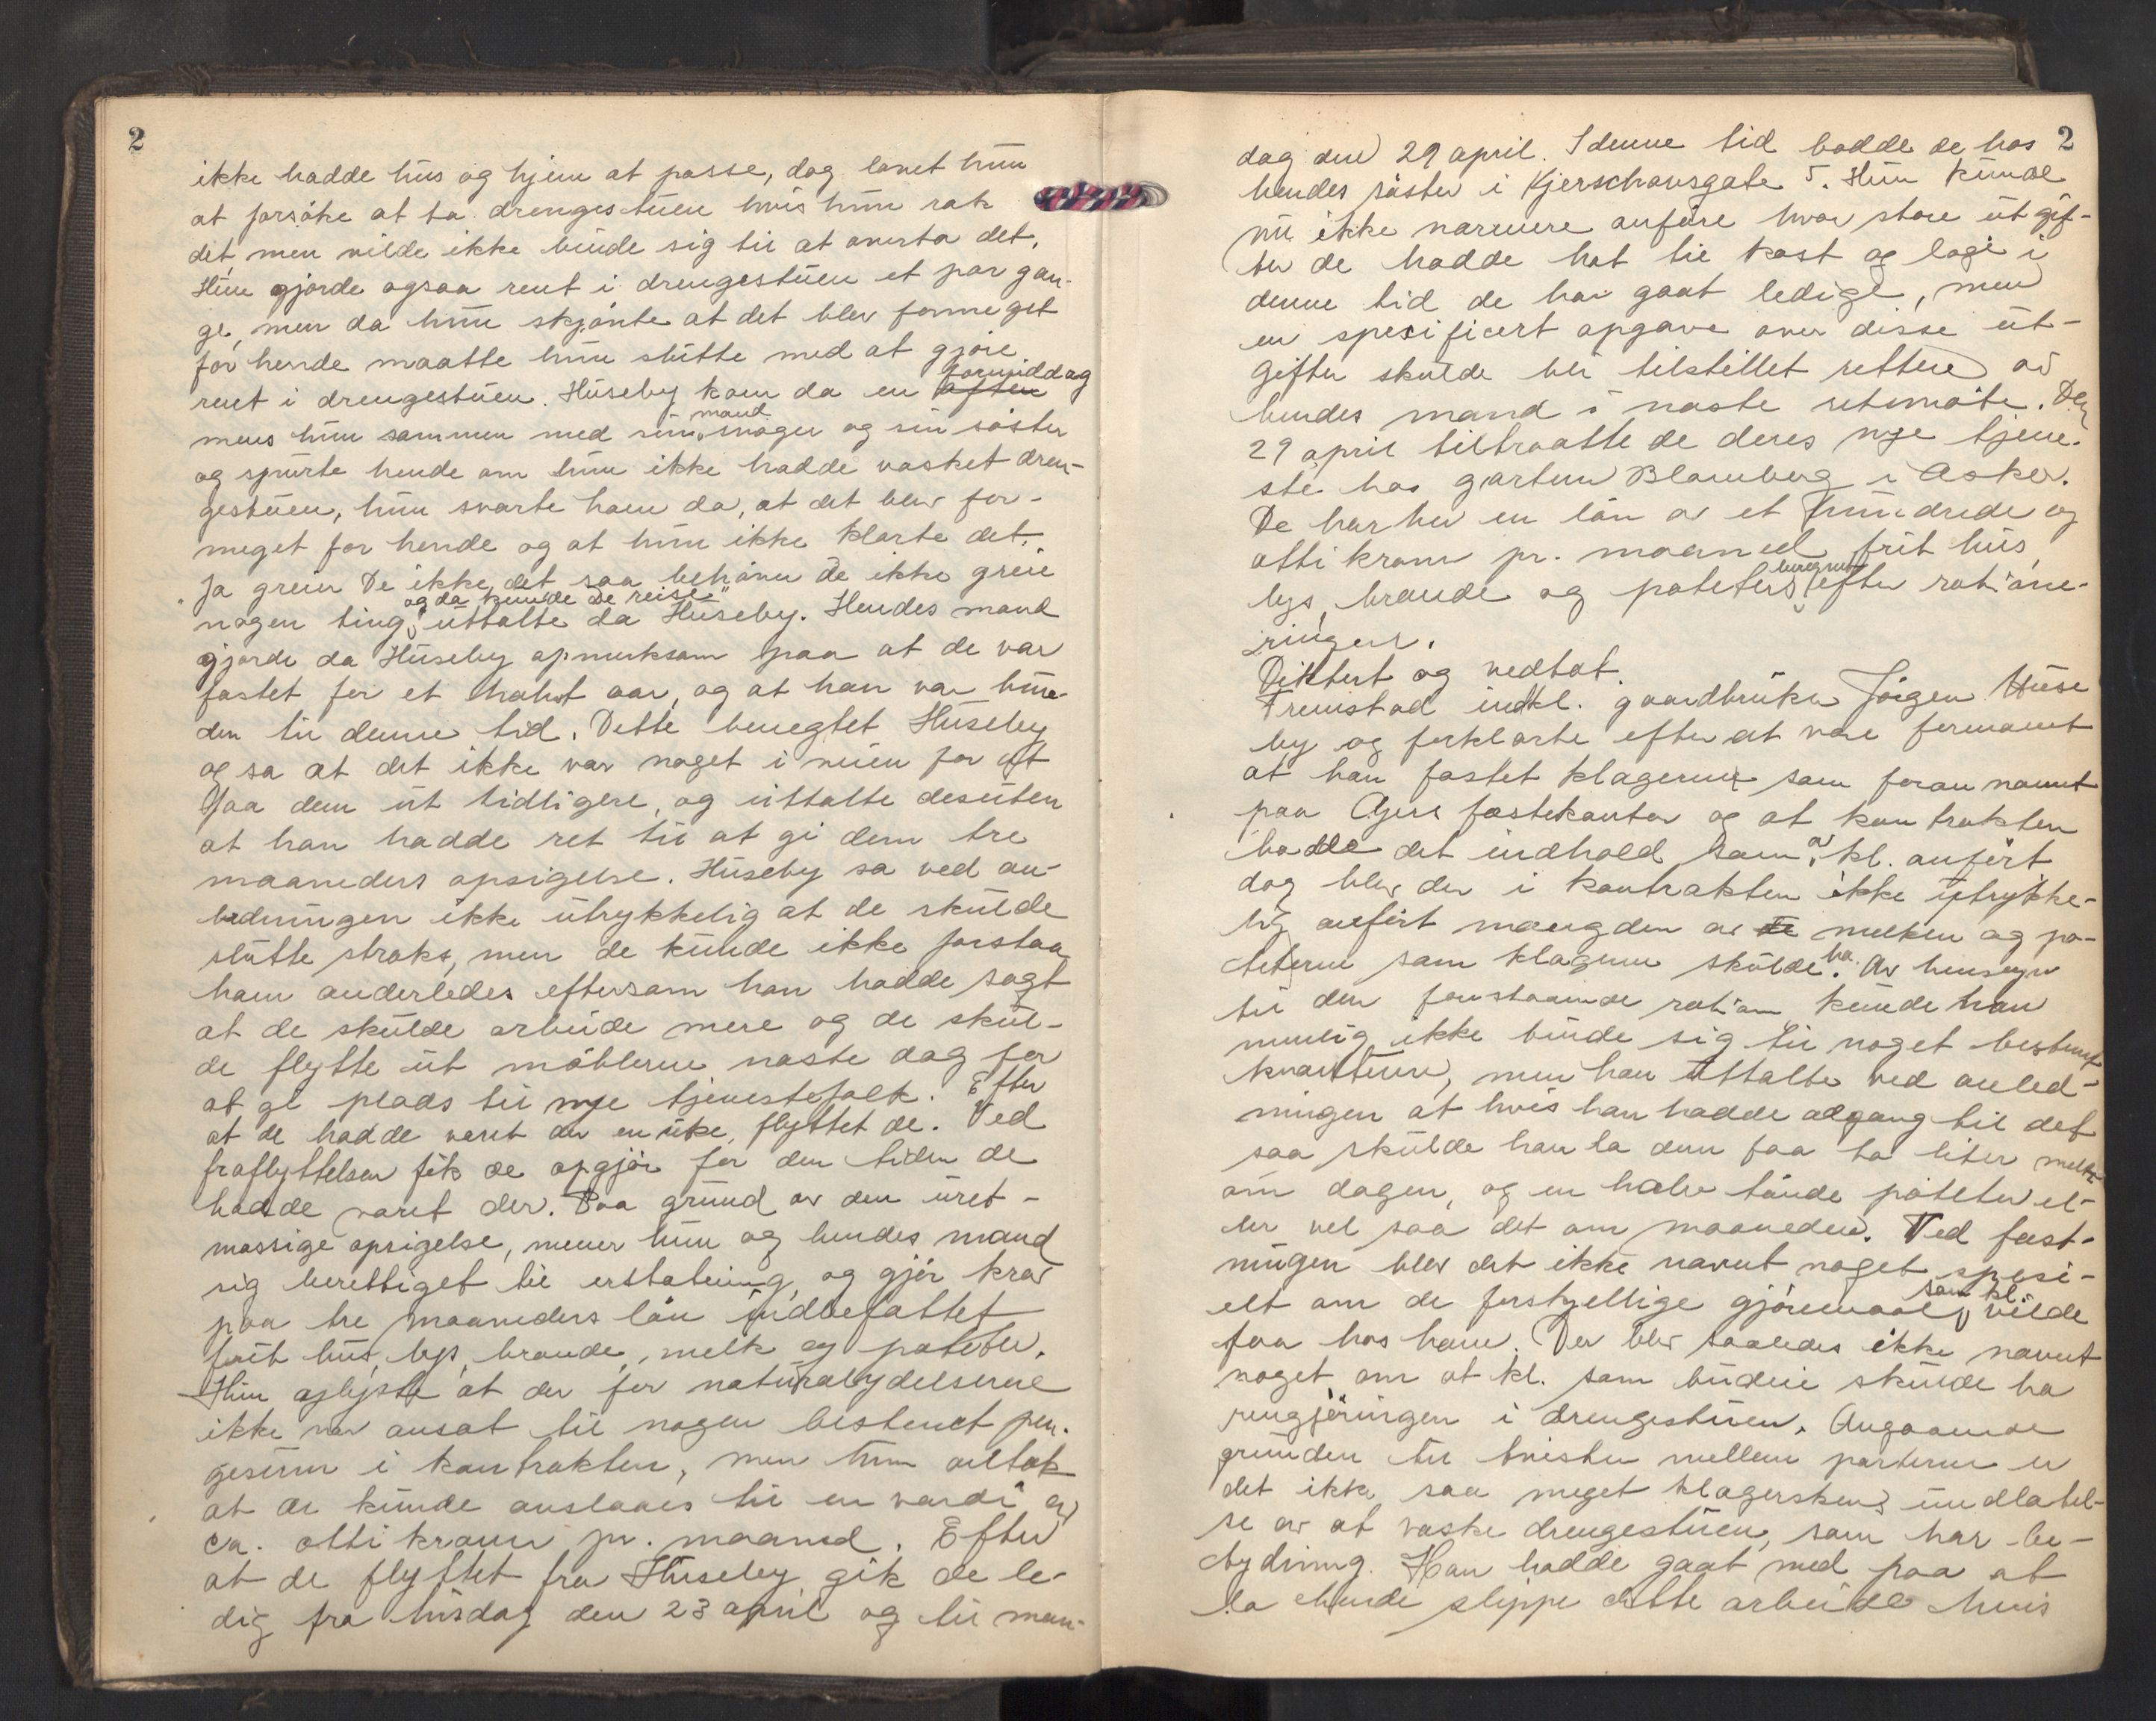 2
ikke hadde hus og hjem at passe, dog lovet hun
at forsöke at ta drengestuen hvis hun rak
det, men vilde ikke binde sig til at overta det.
Hun gjorde ogsaa rent i drengestuen et par gan-
ge, men da hun skjönte at det blev formeget
for hende maatte hun slutte med at gjöre
rent i drengestuen. Huseby kom da en aften formiddag
mens hun sammen med sin mand, svoger og sin söster
og spurte hende om hun ikke hadde vasket dren-
gestuen, hun svarte ham da, at det blev for-
meget for hende og at hun ikke klarte det.
"Ja greier De ikke det saa behöver De ikke greie
nogen ting og da kunde De reise" uttalte da Huseby. Hendes mand
gjorde da Huseby opmerksom paa at de var
fæstet for et halvt aar, og at han var bun-
den til denne tid. Dette benegtet Huseby
og sa at det ikke var noget i veien for at
faa dem ut tidligere, og uttalte desuten
at han hadde ret til at gi dem tre
maaneders opsigelse. Huseby sa ved an-
ledningen ikke utrykkelig at de skulde
slutte straks, men de kunde ikke forstaa
ham anderledes eftersom han hadde sagt
at de skulde arbeide mere og de skul-
de flytte ut möblerne næste dag for
at gi plads til nye tjenestefolk. Efter
at de hadde været der en uke, flyttet de. Ved
fraflyttelsen fik de opgjör for den tiden de
hadde været der. Paa grund av den uret-
mæssige opsigelse, mener hun og hendes mand
sig berettiget til erstatning, og gjör krav
paa tre maaneders lön indbefattet
frit hus, lys, brænde, melk og poteter.
Hun oplyste at der for naturalydelserne
ikke var ansat til nogen bestemt pen-
gesum i kontrakten, men hun antok
at de kunde anslaaes til en værdi av
ca. otti kroner pr. maaned. Efter
at de flyttet fra Huseby gik de le-
dig fra tirsdag den 23 april og til man-
2
dag den 29 april. I denne tid bodde de hos
hendes söster i Kjerschovsgate 5. Hun kunde
nu ikke nærmere anföre hvor store utgif-
ter de hadde hat til kost og logi i
denne tid de har gaat ledige, men
en spesificert opgave over disse ut-
gifter skulde bli tilstillet retten av
hendes mand i næste retsmöte. Den
29 april tiltraatte de deres nye tjene-
ste hos gartner Blomberg i Asker.
De har her en lön av et hundrede og
otti kroner pr. maaned, frit hus,
lys, brænde og poteter beregnet efter rasjone-
ringen.
Diktert og vedtat.
Fremstod indkl. gaardbruker Jörgen Huse
by og forklarte efter at være formanet
at han fæstet klagerne som foran nævnt
paa Akers fæstekontor og at kontrakten
hadde det indhold som av kl. anfört
dog blev der i kontrakten ikke utrykke-
lig anfört mængden av melken og po-
teterne som klagerne skulde ha. Av hensyn
til den forestaaende rasjon kunde han
nemlig ikke binde sig til noget bestemt
kvantum, men han uttalte ved anled-
ningen at hvis han hadde adgang til det
saa skulde han la dem faa to liter melk
om dagen, og en halv tönde poteter el-
ler vel saa det om maaneden. Ved fæst-
ningen blev det ikke nævnt noget spesi-
elt om de forskjellige gjöremaal som kl. vilde
faa hos ham. Der blev saaledes ikke nævnt
noget om at kl. som budeie skulde ha
rengjöringen i drengestuen. Angaaende
grunden til tvisten mellem parterne er
det ikke saa meget klagerskens undlatel-
se av at vaske drengestuen, som har be-
tydning. Han hadde gaat med paa at
la hende slippe dette arbeide hvis